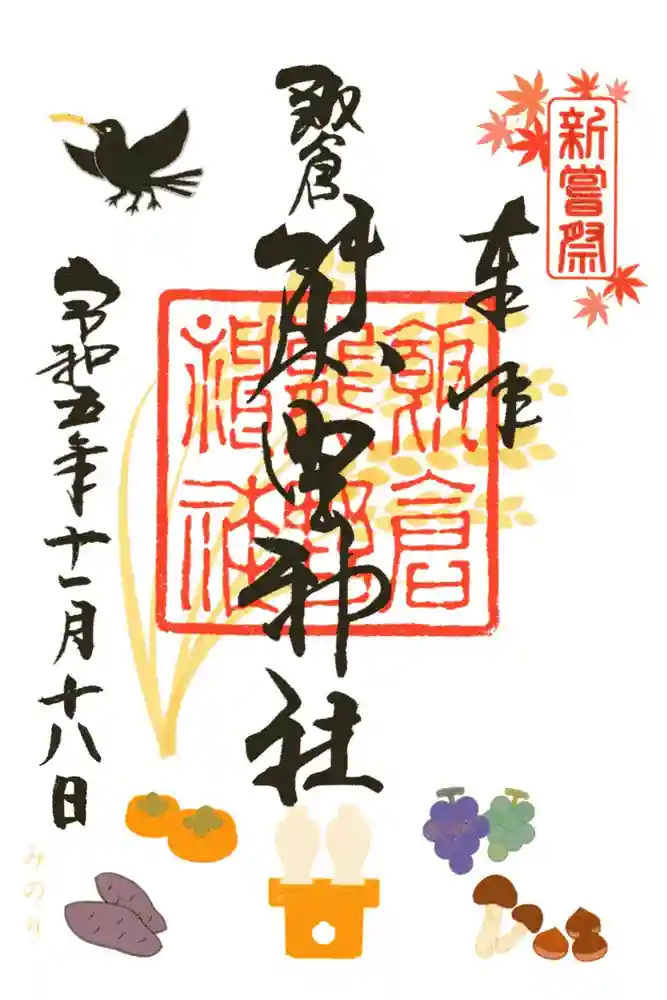 新嘗祭
奉拝
飯倉
熊野神社
飯倉
熊野
神社
令和五年十一月十八日
みのり